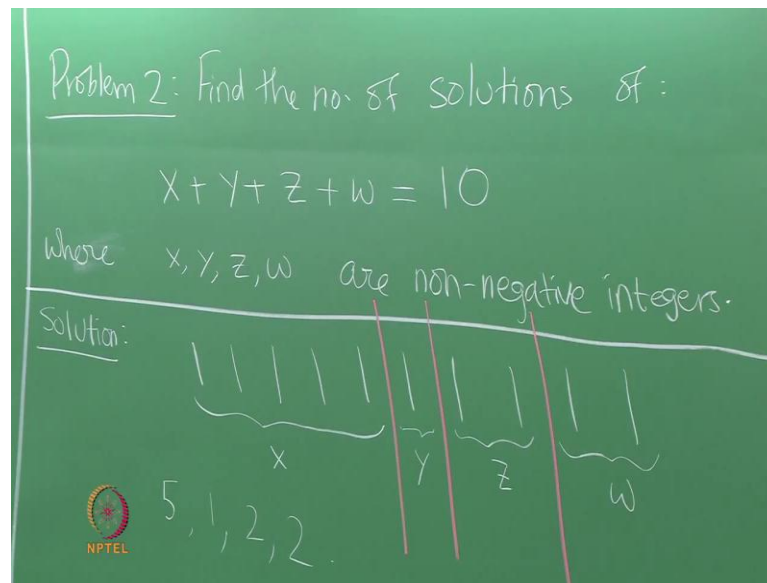 Problem 2: Find the no. of solutions of :
X + Y + Z + W = 10
where x, y, z, w are non-negative integers.
Solution:
X Y Z W
5, 1, 2, 2.
NPTEL